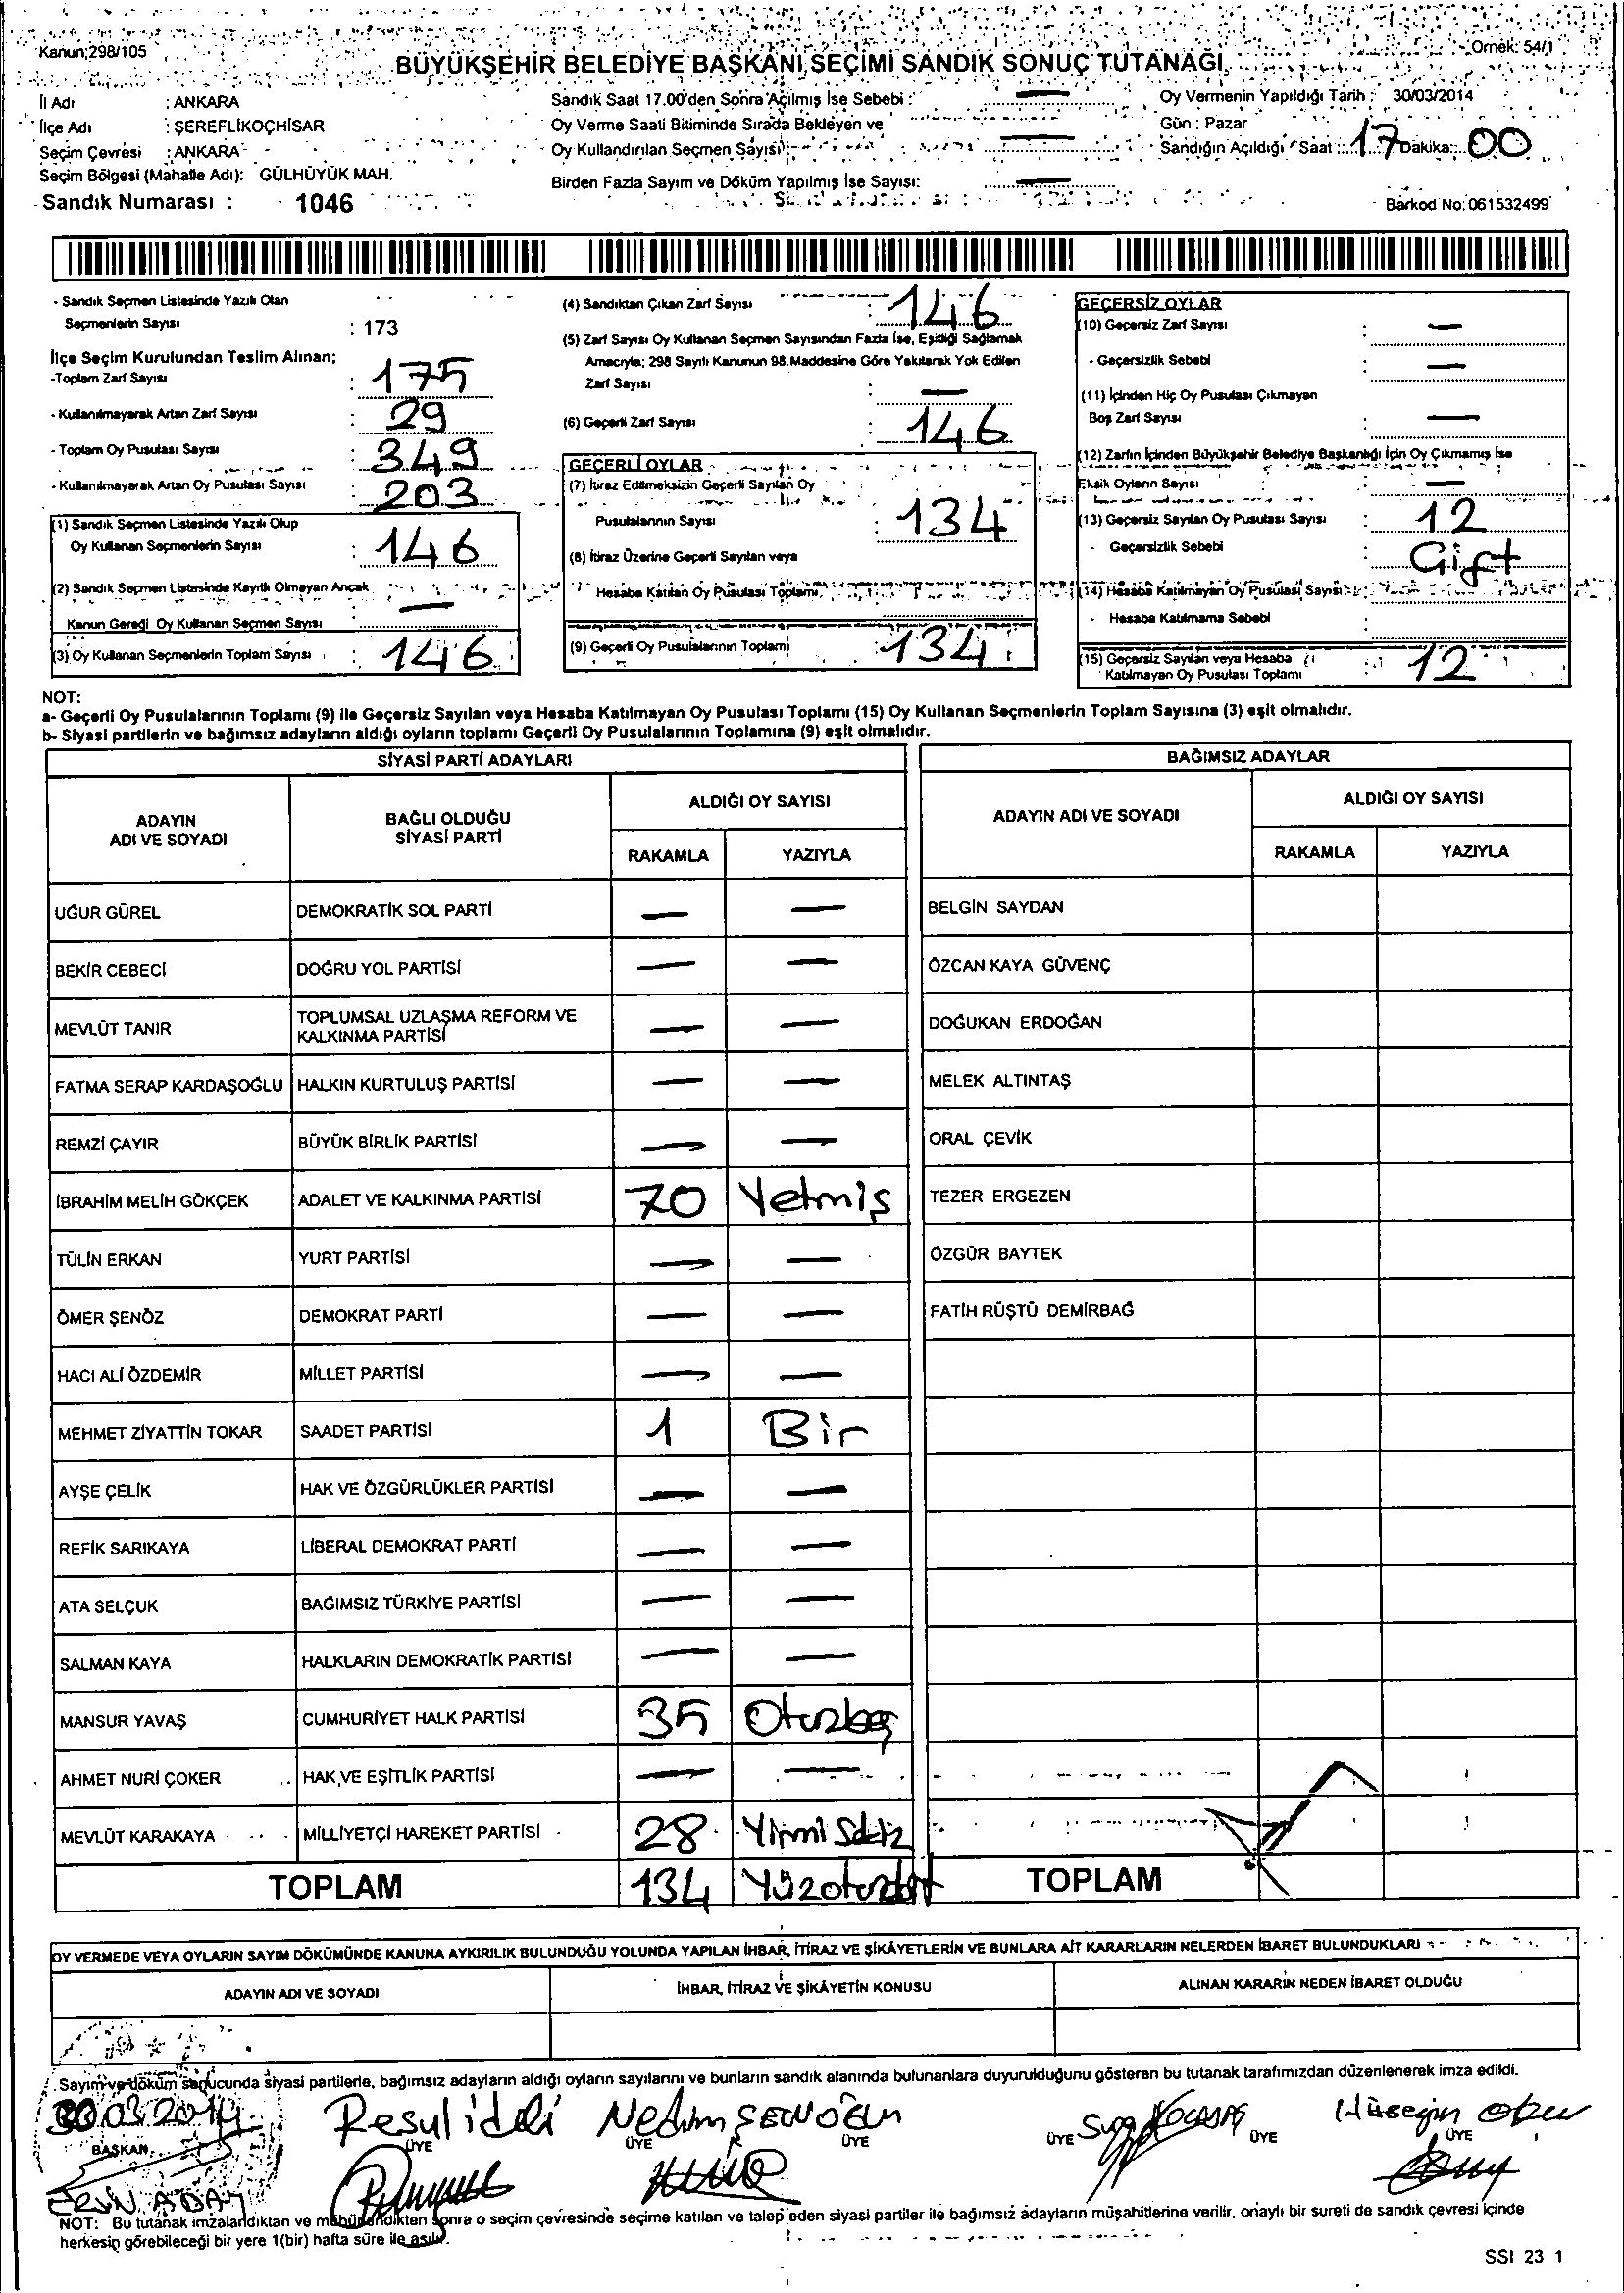 Kanun;298/105
Örnek: 54/1
BÜYÜKŞEHİR BELEDİYE BAŞKANI SEÇİMİ SANDIK SONUÇ TUTANAĞI
İl Adı : ANKARA
İlçe Adı : ŞEREFLİKOÇHİSAR
Seçim Çevresi : ANKARA
Seçim Bölgesi (Mahalle Adı): GÜLHÜYÜK MAH.
Sandık Numarası : 1046
Sandık Saat 17.00'den Sonra Açılmış İse Sebebi : —
Oy Verme Saati Bitiminde Sırada Bekleyen ve
Oy Kullandırılan Seçmen Sayısı: —
Birden Fazla Sayım ve Döküm Yapılmış İse Sayısı: —
Oy Vermenin Yapıldığı Tarih : 30/03/2014
Gün : Pazar
Sandığın Açıldığı Saat : 17 Dakika: 00
Barkod No: 061532499
- Sandık Seçmen Listesinde Yazılı Olan
Seçmenlerin Sayısı : 173
İlçe Seçim Kurulundan Teslim Alınan;
-Toplam Zarf Sayısı : 175
- Kullanılmayarak Artan Zarf Sayısı : 29
- Toplam Oy Pusulası Sayısı : 349
- Kullanılmayarak Artan Oy Pusulası Sayısı : 203
(1) Sandık Seçmen Listesinde Yazılı Olup
Oy Kullanan Seçmenlerin Sayısı : 146
(2) Sandık Seçmen Listesinde Kayıtlı Olmayan Ancak
Kanun Gereği Oy Kullanan Seçmen Sayısı : —
(3) Oy Kullanan Seçmenlerin Toplam Sayısı : 146
(4) Sandıktan Çıkan Zarf Sayısı : 146
(5) Zarf Sayısı Oy Kullanan Seçmen Sayısından Fazla İse, Eşitliği Sağlamak
Amacıyla; 298 Sayılı Kanunun 98.Maddesine Göre Yakılarak Yok Edilen
Zarf Sayısı : —
(6) Geçerli Zarf Sayısı : 146
GEÇERLİ OYLAR
(7) İtiraz Edilmeksizin Geçerli Sayılan Oy
Pusulalarının Sayısı : 134
(8) İtiraz Üzerine Geçerli Sayılan veya
Hesaba Katılan Oy Pusulası Toplamı
(9) Geçerli Oy Pusulalarının Toplamı : 134
GEÇERSİZ OYLAR
(10) Geçersiz Zarf Sayısı : —
- Geçersizlik Sebebi : —
(11) İçinden Hiç Oy Pusulası Çıkmayan
Boş Zarf Sayısı : —
(12) Zarfın İçinden Büyükşehir Belediye Başkanlığı İçin Oy Çıkmamış İse
Eksik Oyların Sayısı : —
(13) Geçersiz Sayılan Oy Pusulası Sayısı : 12
- Geçersizlik Sebebi : Çift
(14) Hesaba Katılmayan Oy Pusulası Sayısı :
- Hesaba Katılmama Sebebi :
(15) Geçersiz Sayılan veya Hesaba
Katılmayan Oy Pusulası Toplamı : 12
NOT:
a- Geçerli Oy Pusulalarının Toplamı (9) ile Geçersiz Sayılan veya Hesaba Katılmayan Oy Pusulası Toplamı (15) Oy Kullanan Seçmenlerin Toplam Sayısına (3) eşit olmalıdır.
b- Siyasi partilerin ve bağımsız adayların aldığı oyların toplamı Geçerli Oy Pusulalarının Toplamına (9) eşit olmalıdır.
SİYASİ PARTİ ADAYLARI
ADAYIN ADI VE SOYADI BAĞLI OLDUĞU SİYASİ PARTİ ALDIĞI OY SAYISI
RAKAMLA YAZIYLA
UĞUR GÜREL DEMOKRATİK SOL PARTİ — —
BEKİR CEBECİ DOĞRU YOL PARTİSİ — —
MEVLÜT TANIR TOPLUMSAL UZLAŞMA REFORM VE KALKINMA PARTİSİ — —
FATMA SERAP KARDAŞOĞLU HALKIN KURTULUŞ PARTİSİ — —
REMZİ ÇAYIR BÜYÜK BİRLİK PARTİSİ — —
İBRAHİM MELİH GÖKÇEK ADALET VE KALKINMA PARTİSİ 70 Yetmiş
TÜLİN ERKAN YURT PARTİSİ — —
ÖMER ŞENÖZ DEMOKRAT PARTİ — —
HACI ALİ ÖZDEMİR MİLLET PARTİSİ — —
MEHMET ZİYATTİN TOKAR SAADET PARTİSİ 1 Bir
AYŞE ÇELİK HAK VE ÖZGÜRLÜKLER PARTİSİ — —
REFİK SARIKAYA LİBERAL DEMOKRAT PARTİ — —
ATA SELÇUK BAĞIMSIZ TÜRKİYE PARTİSİ — —
SALMAN KAYA HALKLARIN DEMOKRATİK PARTİSİ — —
MANSUR YAVAŞ CUMHURİYET HALK PARTİSİ 35 Otuzbeş
AHMET NURİ ÇOKER HAK VE EŞİTLİK PARTİSİ — —
MEVLÜT KARAKAYA MİLLİYETÇİ HAREKET PARTİSİ 28 Yirmi Sekiz
TOPLAM 134 Yüzotuzdört
BAĞIMSIZ ADAYLAR
ADAYIN ADI VE SOYADI ALDIĞI OY SAYISI
RAKAMLA YAZIYLA
BELGİN SAYDAN
ÖZCAN KAYA GÜVENÇ
DOĞUKAN ERDOĞAN
MELEK ALTINTAŞ
ORAL ÇEVİK
TEZER ERGEZEN
ÖZGÜR BAYTEK
FATİH RÜŞTÜ DEMİRBAĞ
TOPLAM
OY VERMEDE VEYA OYLARIN SAYIM DÖKÜMÜNDE KANUNA AYKIRILIK BULUNDUĞU YOLUNDA YAPILAN İHBAR, İTİRAZ VE ŞİKÂYETLERİN VE BUNLARA AİT KARARLARIN NELERDEN İBARET BULUNDUKLARI
ADAYIN ADI VE SOYADI İHBAR, İTİRAZ VE ŞİKÂYETİN KONUSU ALINAN KARARIN NEDEN İBARET OLDUĞU
Sayım ve döküm sonucunda siyasi partilerle, bağımsız adayların aldığı oyların sayılarını ve bunların sandık alanında bulunanlara duyurulduğunu gösteren bu tutanak tarafımızdan düzenlenerek imza edildi.
30.03.2014 Resul Nedim Hüseyin
BAŞKAN ÜYE ÜYE ÜYE ÜYE ÜYE ÜYE
NOT: Bu tutanak imzalandıktan ve mühürlendikten sonra o seçim çevresinde seçime katılan ve talep eden siyasi partiler ile bağımsız adayların müşahitlerine verilir, onaylı bir sureti de sandık çevresi içinde
herkesin görebileceği bir yere 1(bir) hafta süre ile asılır.
SSI 23 1